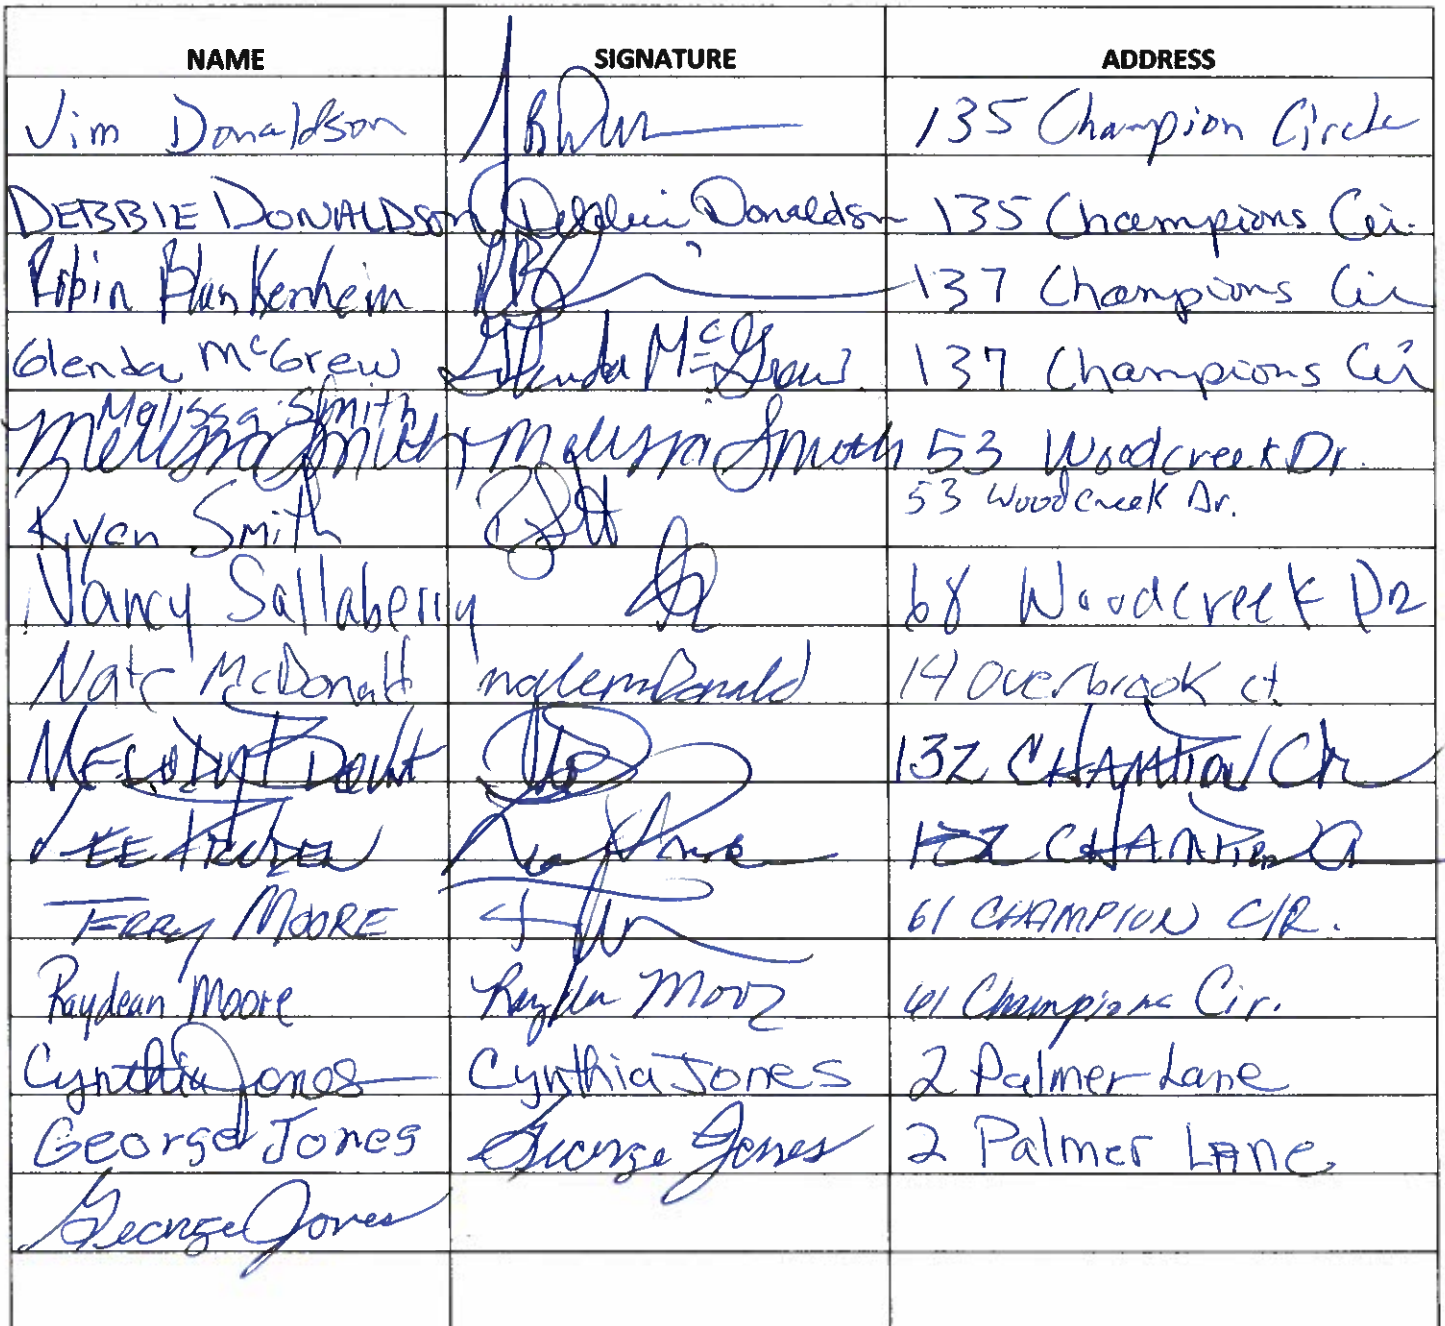 NAME SIGNATURE ADDRESS
Jim Donaldson 135 Champion Circle
DEBBIE DONALDSON Debbie Donaldson 135 Champions Cir.
Robin Blankenheim RB 137 Champions Cir
Glenda McGrew Glenda McGrew 137 Champions Cir
Melissa Smith
Melissa Smith Melissa Smith 53 Woodcreek Dr.
Ryan Smith 53 Woodcreek Dr.
Nancy Sallaberry 68 Woodcreek Dr
Nate McDonald 14 Overbrook ct.
MELODY 132 CHAMPION CIR
LEE 132 CHAMPION
TERRY MOORE 61 CHAMPION CIR.
Raydean Moore Moore 61 Champions Cir.
Cynthia Jones Cynthia Jones 2 Palmer Lane
George Jones George Jones 2 Palmer Lane
George Jones